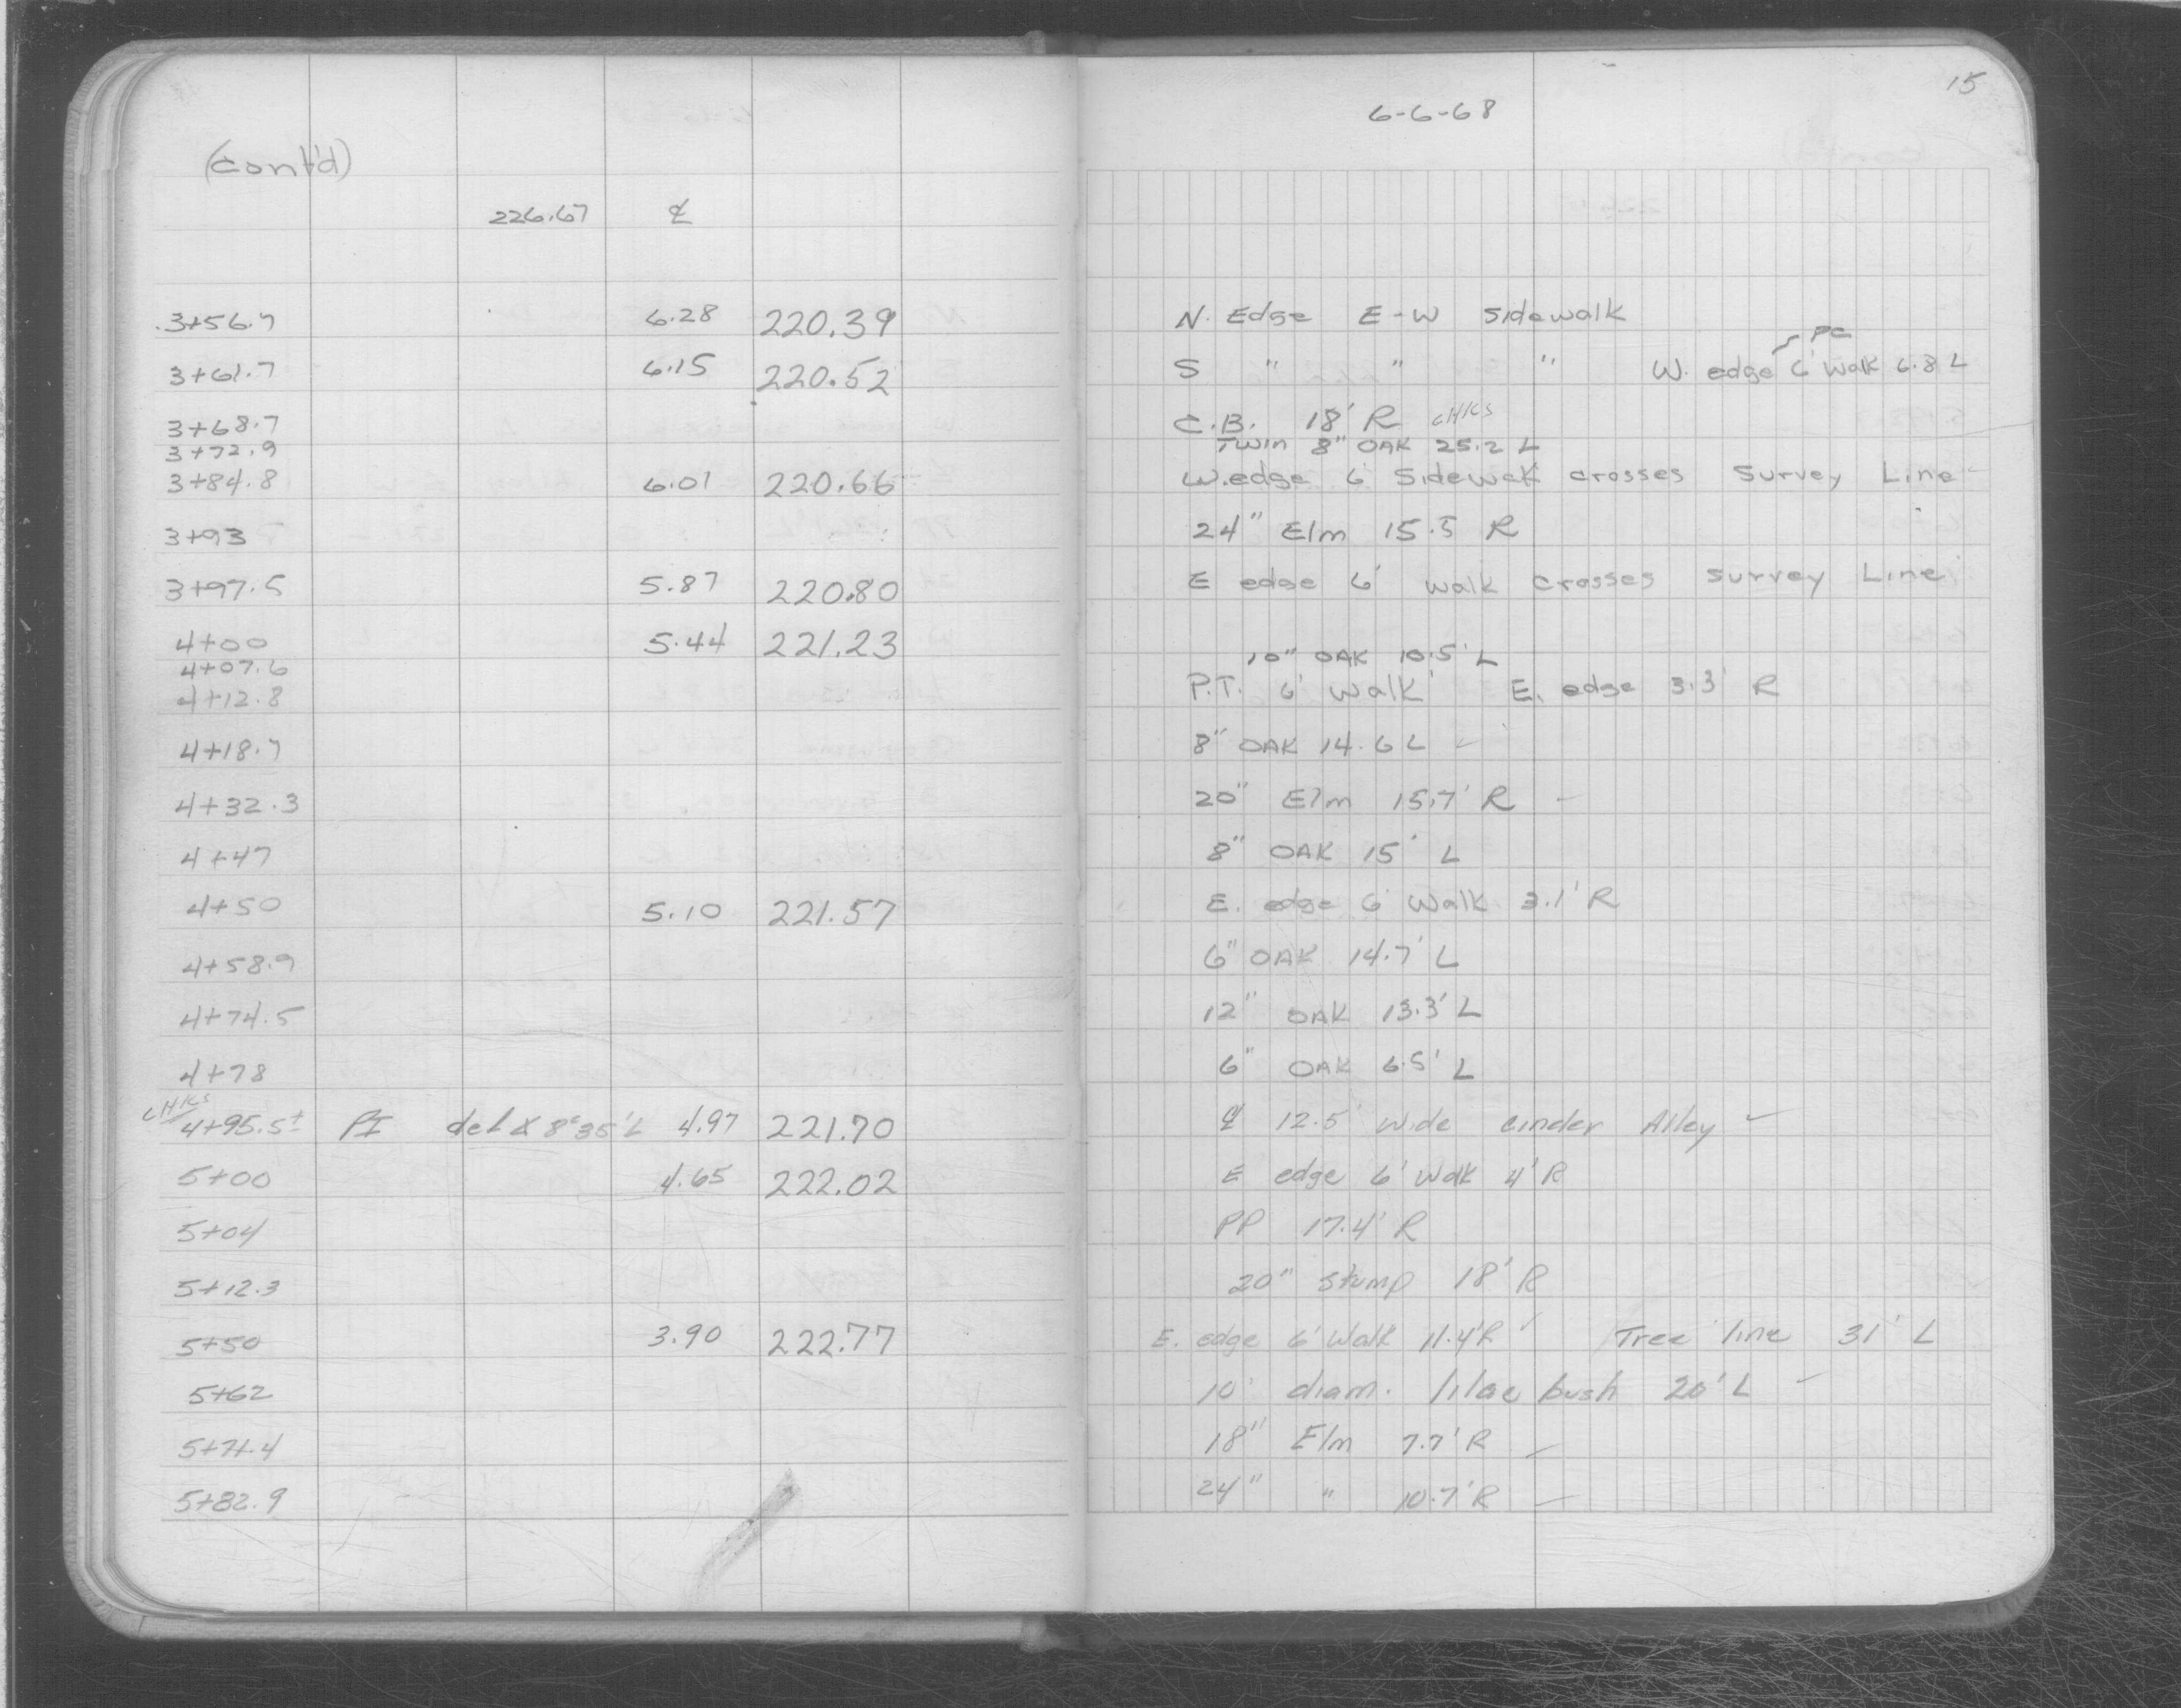 15
6-6-68
(cont'd)
226.67 ℄
3+56.7 6.28 220.39 N. Edge E-W Sidewalk
PC
3+61.7 6.15 220.52 S " " " W. edge 6' Walk 6.8 L
3+68.7 C.B. 18' R CHKS
3+72.9 Twin 8" OAK 25.2 L
3+84.8 6.01 220.66 W. edge 6' Sidewak crosses Survey Line
3+93 24" Elm 15.5 R
3+97.5 5.87 220.80 E edge 6' walk crosses survey Line
4+00 5.44 221.23
4+07.6 10" OAK 10.5' L
4+12.8 P.T. 6' Walk E. edge 3.3' R
4+18.7 8" OAK 14.6 L
4+32.3 20" Elm 15.7' R
4+47 8" OAK 15' L
4+50 5.10 221.57 E. edge 6' Walk 3.1' R
4+58.9 6" OAK 14.7' L
4+74.5 12" OAK 13.3' L
4+78 6" OAK 6.5' L
CHKS
4+95.5± PI def ∡ 8°35' L 4.97 221.70 ℄ 12.5' wide cinder Alley
5+00 4.65 222.02 E edge 6' Walk 4' R
5+04 PP 17.4' R
5+12.3 20" stump 18' R
5+50 3.90 222.77 E. edge 6' Walk 11.4' R Tree line 31' L
5+62 10' diam. lilac bush 20' L
5+71.4 18" Elm 7.7' R
5+82.9 24" " 10.7' R